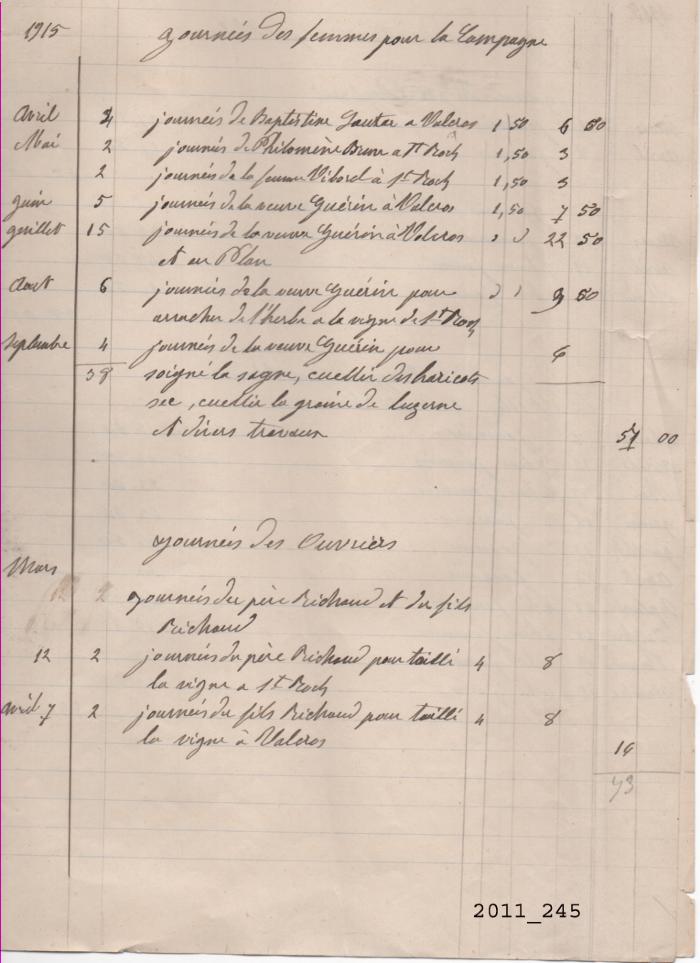 1915 journeés des femmes pour la Campagne
Avril 4 journeés de Baptistine Gautier a Valcros 1 50 6 00
Mai 2 journeés de Philomène Brun a St Roch 1,50 3
2 journeés de la femme Vibord à St Roch 1,50 3
juin 5 journeés de la veuve Guérin à Valcros 1,50 7 50
juillet 15 journeés de la veuve Guérin à Valcros " " 22 50
et au Plan
Aout 6 journeés de la veuve Guérin pour " " 9 50
arracher de l'herbe a la vigne de St Roch
Septembre 4 journeés de la veuve Guérin pour 6
38 soigné la sagne, cuellir des haricots
sec, cuellir la graine de luzerne
et divers travaux 57 00
journeés des Ouvriers
Mars
12 2 journeés du père Richaud et du fils
Richaud
12 2 journeés du père Richaud pour taillé 4 8
la vigne a St Roch
avril 7 2 journeés du fils Richaud pour taillé 4 8
la vigne à Valcros
16
73
2011_245